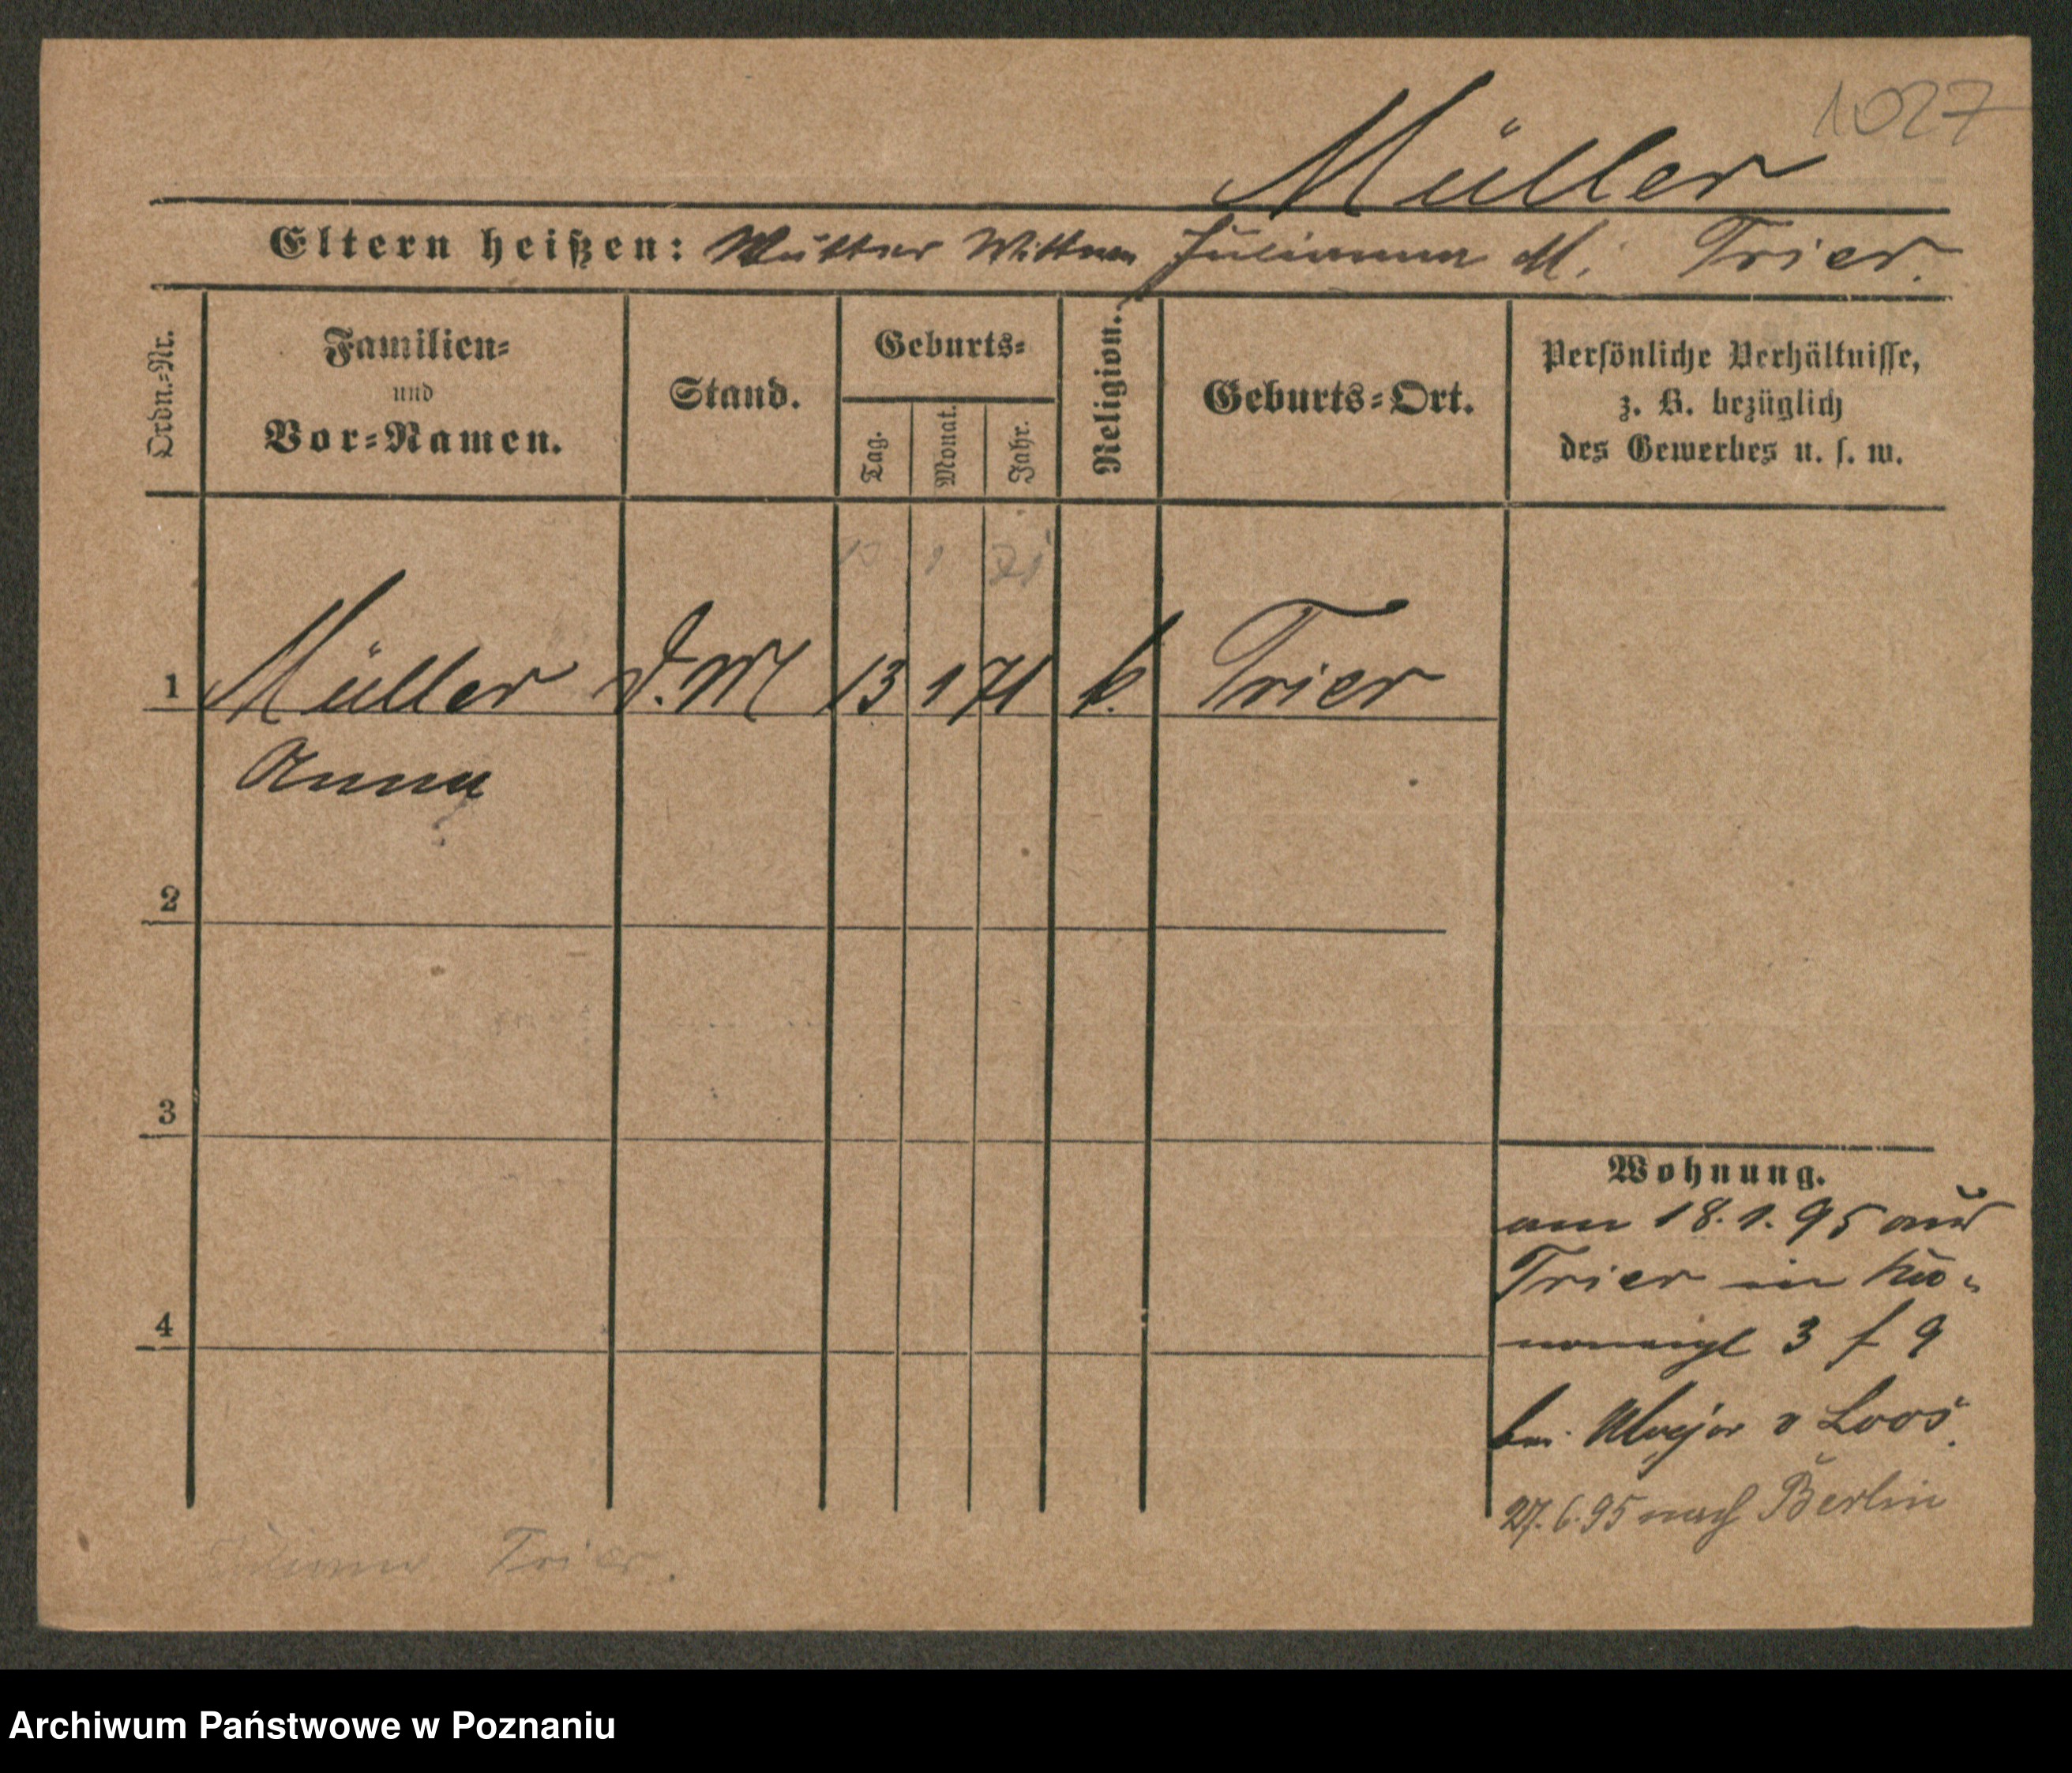 1027
Müller
Eltern heißen: Mutter Wittwe Julianna M. Trier.
Ordn.-Nr.
Familien-
und
Vor-Namen.
Stand.
Geburts-
Tag.
Monat.
Jahr.
Religion.
Geburts-Ort.
Persönliche Verhältnisse,
z. B. bezüglich
des Gewerbes u. s. w.
13 1 71
1 Müller D.M 13 1 71 k. Trier
Anna
2
3
4
Wohnung.
am 18.1.95 aus
Trier in
3 f 9
bei Major v Loos.
27.6.95 nach Berlin
Trier.
Archiwum Państwowe w Poznaniu